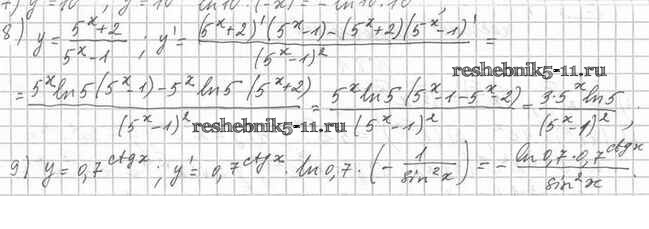 7) y=10 ; y=10 ln10·(-x)=-ln10·
8) y = (5^x+2)/(5^x-1) ; y' = ((5^x+2)'(5^x-1)-(5^x+2)(5^x-1)')/(5^x-1)^2 =
= (5^x ln5(5^x-1)-5^x ln5(5^x+2))/(5^x-1)^2 = (5^x ln5(5^x-1-5^x-2))/(5^x-1)^2 - (3·5^x ln5)/(5^x-1)^2 ;
reshebnik5-11.ru
reshebnik5-11.ru
9) y=0,7^ctgx ; y'=0,7^ctgx · ln0,7·(-1/sin^2x) = - (ln0,7·0,7^ctgx)/sin^2x .